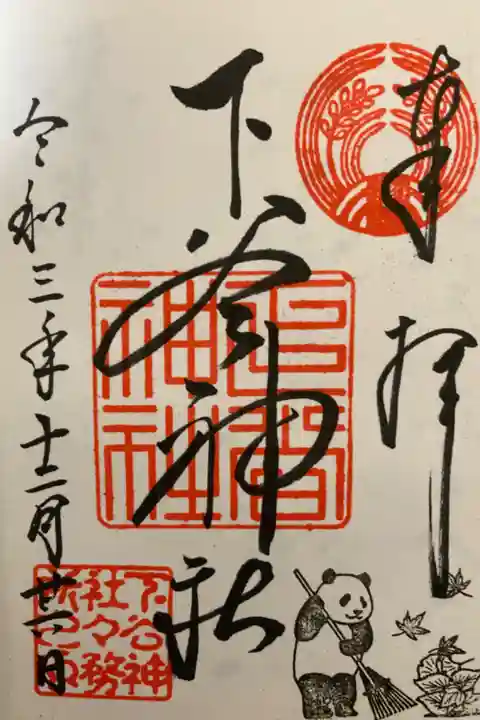 奉拝
下谷神社
下谷神社
令和三年十二月廿日
下谷神
社々務
所之印